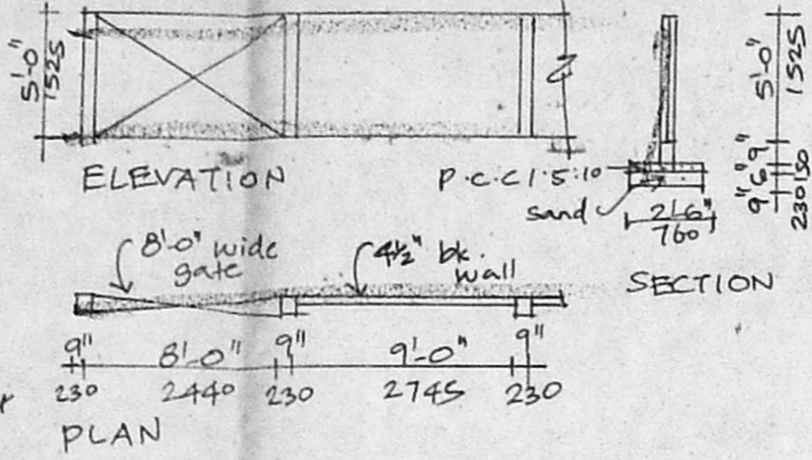 5'-0"
1525
ELEVATION
P.C.C 1:5:10
sand
2'-6"
760
5'-0"
1525
9" 6" 9"
230 150
SECTION
8'-0" wide
gate
4½" bk.
wall
9" 8'-0" 9" 9'-0" 9"
230 2440 230 2745 230
PLAN